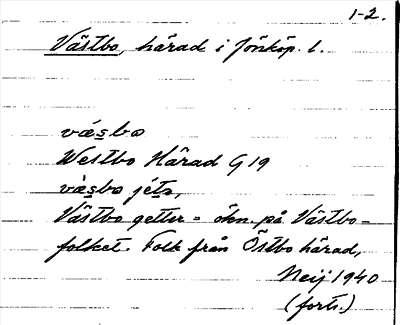 1-2.
Västbo, härad i Jönköp. l.
väsbo
Westbo Härad G 19
väsbo jéts,
Västbo getter = ökn. på Västbo-
folket. Folk från Östbo härad,
Neij 1940
(forts.)